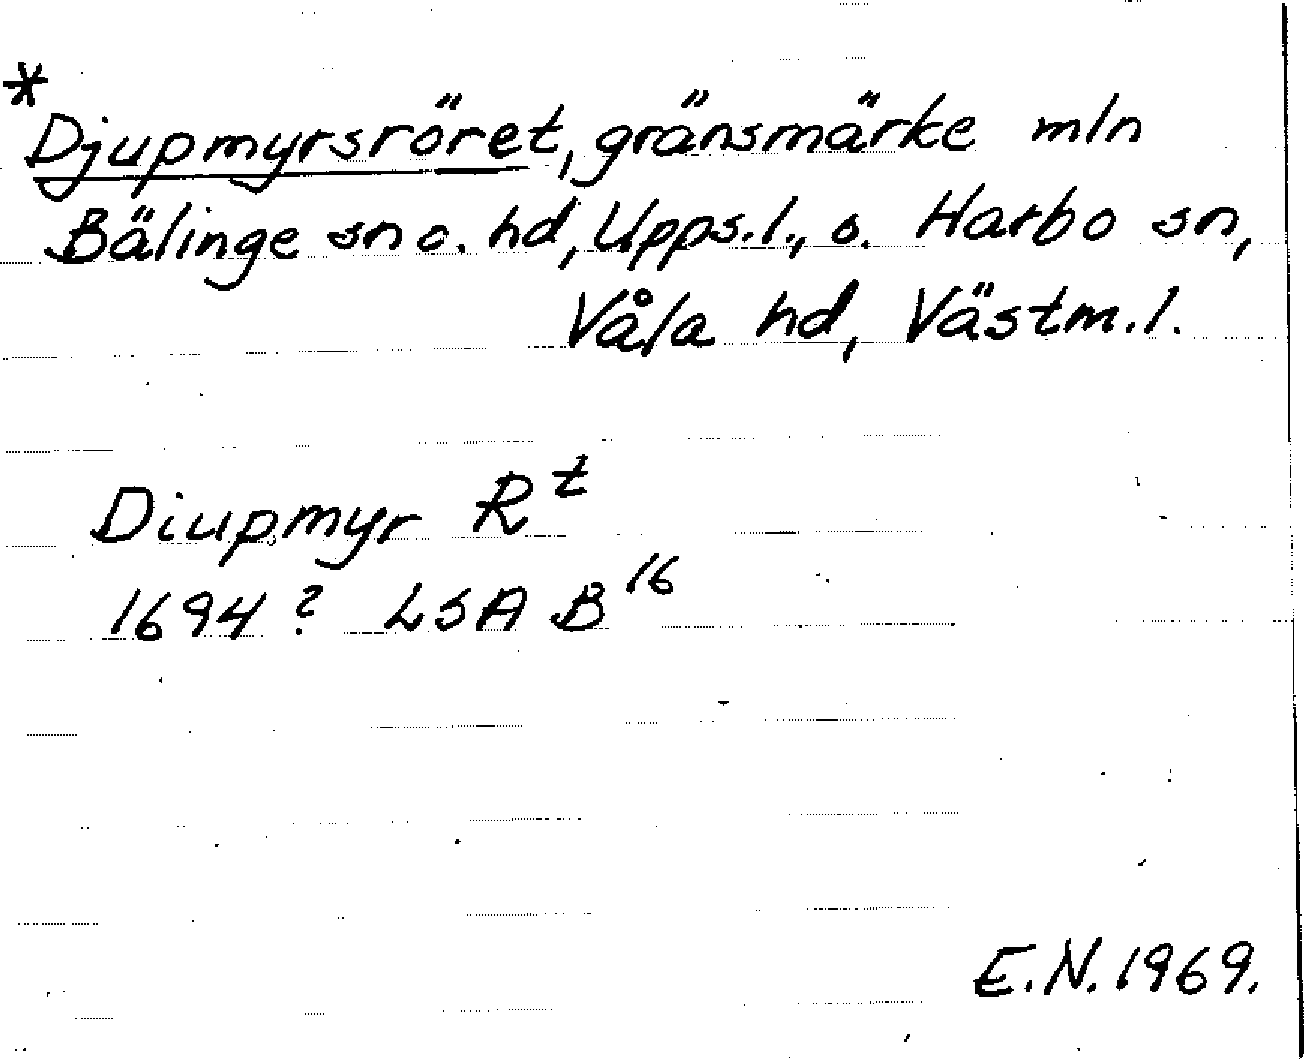 *
Djupmyrsröret, gränsmärke mln
Bälinge sn o. hd, Upps.l., o. Harbo sn,
Våla hd, Västm.l.
Diupmyr Rt
1694? LSA B16
E.N. 1969.